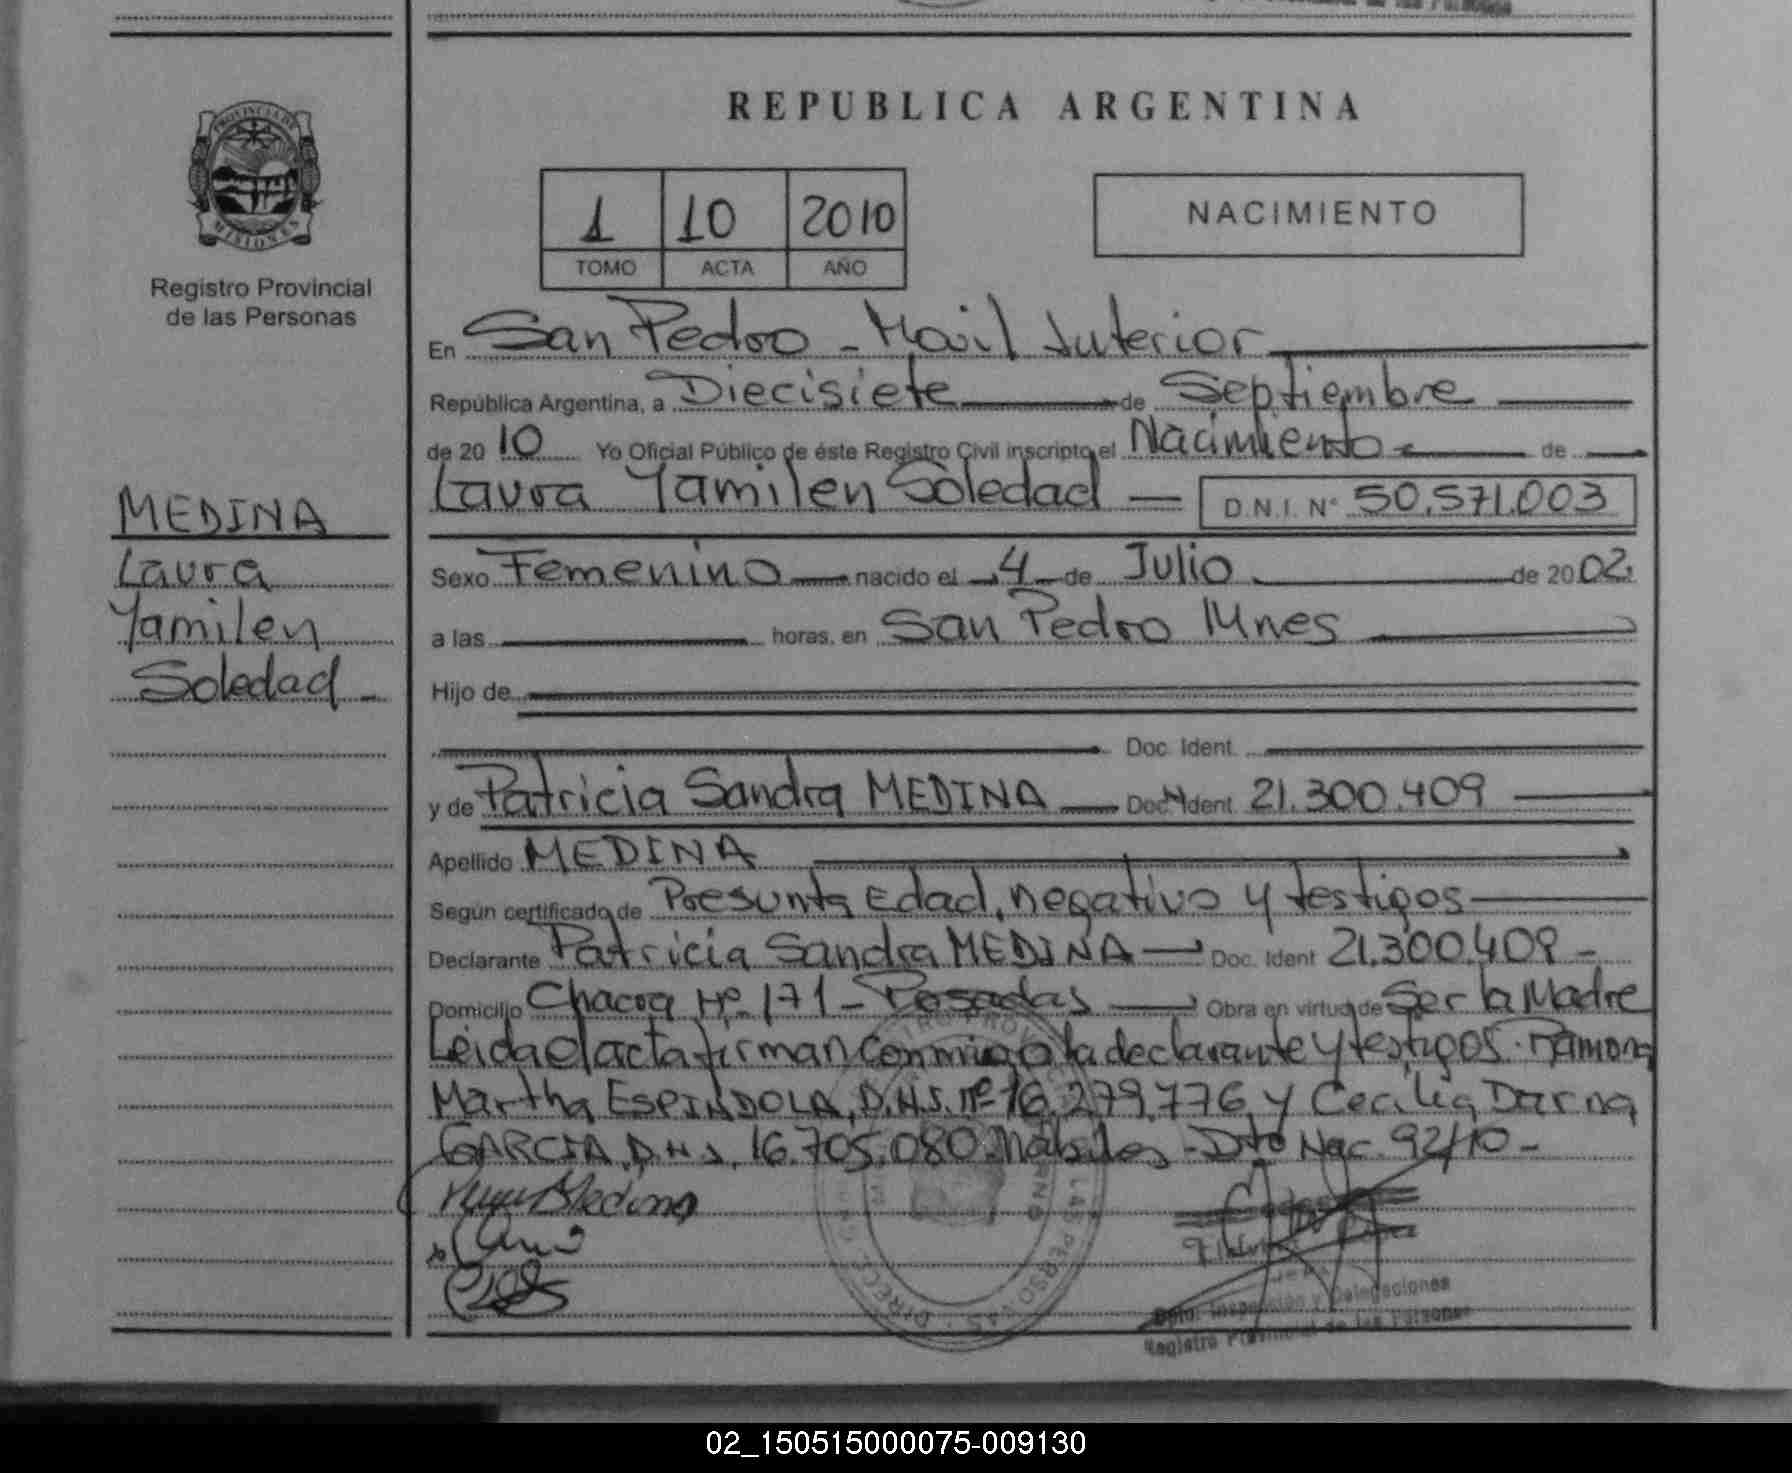 REPUBLICA ARGENTINA
PROVINCIA DE
MISIONES
Registro Provincial
de las Personas
1 10 2010
TOMO ACTA AÑO
NACIMIENTO
MEDINA
Laura
Yamilen
Soledad
En San Pedro - Movil Interior
República Argentina, a Diecisiete de Septiembre
de 2010 Yo Oficial Público de éste Registro Civil inscripto el Nacimiento de
Laura Yamilen Soledad D.N.I. N° 50.571.003
Sexo Femenino nacido el 4 de Julio de 2002
a las horas, en San Pedro Mnes
Hijo de
Doc. Ident.
y de Patricia Sandra MEDINA Doc. Ident. 21.300.409
Apellido MEDINA
Según certificado de Presunta Edad, negativo y testigos
Declarante Patricia Sandra MEDINA Doc. Ident 21.300.409 -
Domicilio Chacra Nº 171 - Posadas Obra en virtud de Ser la Madre
Leida el acta firman conmigo la declarante y testigos. Ramona
Martha ESPINDOLA, D.N.I. Nº 16.279.776 y Cecilia
GARCIA, D.N.I. 16.705.080 habiles - Dto Nac. 92/10 -
Medina
Dpto. Inspección y Delegaciones
Registro Provincial de las Personas
02_150515000075-009130